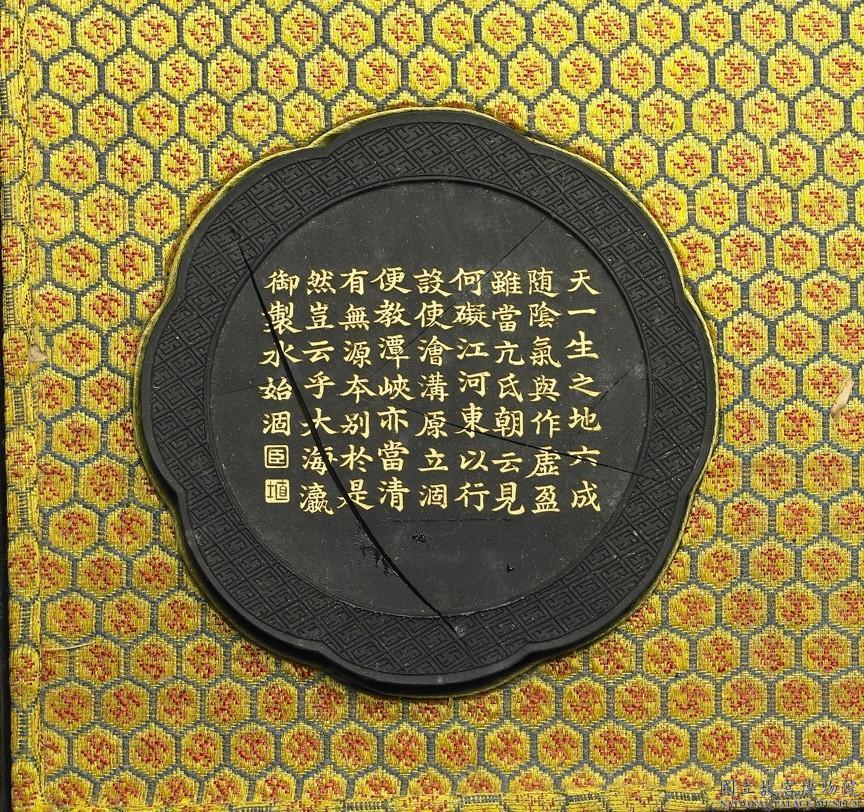 天一生之地六成
随陰氣與作虛盈
雖當亢氐朝云見
何礙江河東以行
設使澮溝原立涸
便教潭峽亦當清
有無源夲別於是
然豈云乎大海瀛
御製水始涸
臣
埴
國立故宮博物院
NATIONAL PALACE MUSEUM